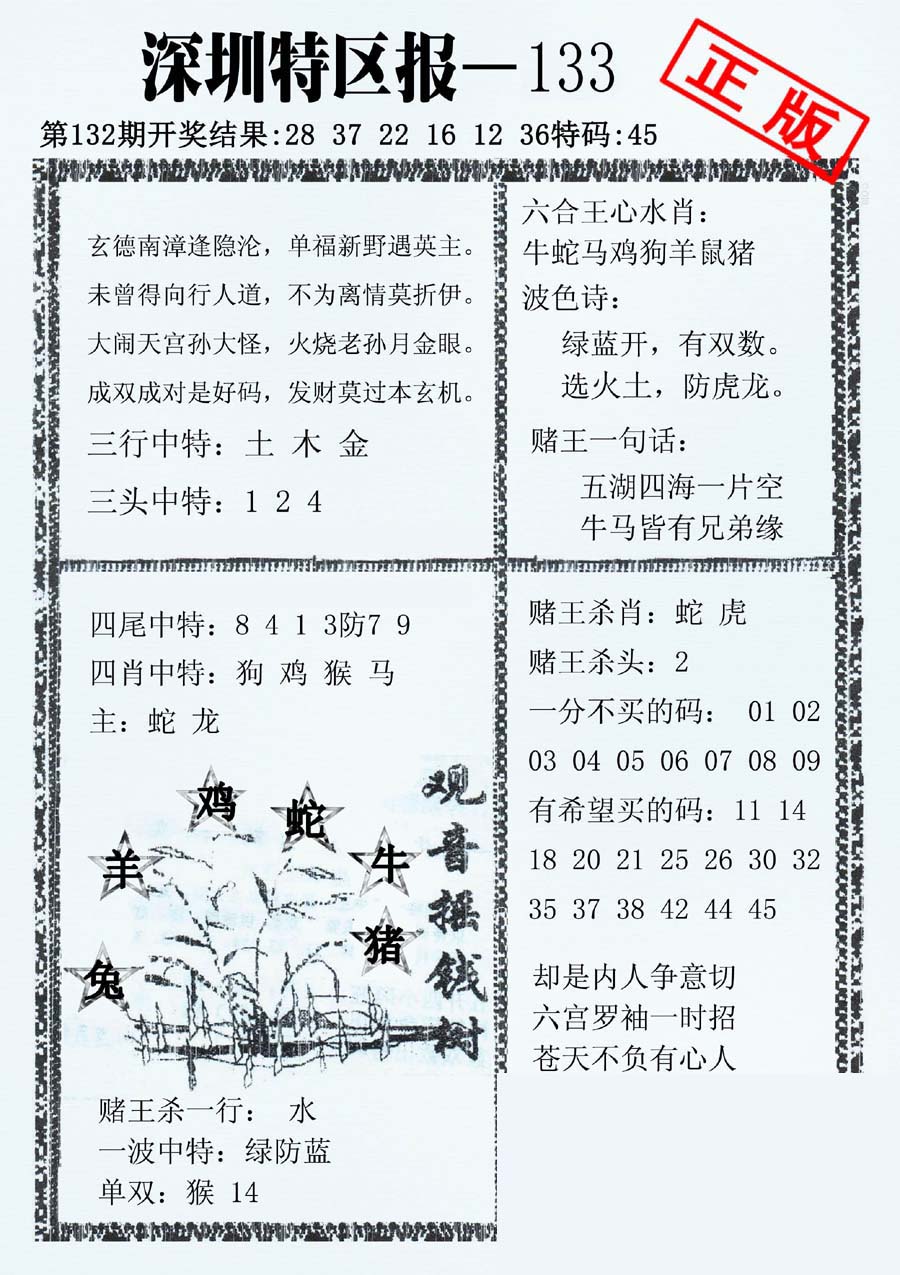 深圳特区报—133
正版
第132期开奖结果:28 37 22 16 12 36特码:45
玄德南漳逢隐沦，单福新野遇英主。
未曾得向行人道，不为离情莫折伊。
大闹天宫孙大怪，火烧老孙月金眼。
成双成对是好码，发财莫过本玄机。
三行中特：土 木 金
三头中特：1 2 4
六合王心水肖：
牛蛇马鸡狗羊鼠猪
波色诗：
绿蓝开，有双数。
选火土，防虎龙。
赌王一句话：
五湖四海一片空
牛马皆有兄弟缘
四尾中特：8 4 1 3防7 9
四肖中特：狗 鸡 猴 马
主：蛇 龙
鸡
蛇
羊
牛
猪
兔
观音摇钱树
赌王杀一行： 水
一波中特：绿防蓝
单双：猴 14
赌王杀肖：蛇 虎
赌王杀头：2
一分不买的码： 01 02
03 04 05 06 07 08 09
有希望买的码：11 14
18 20 21 25 26 30 32
35 37 38 42 44 45
却是内人争意切
六宫罗袖一时招
苍天不负有心人